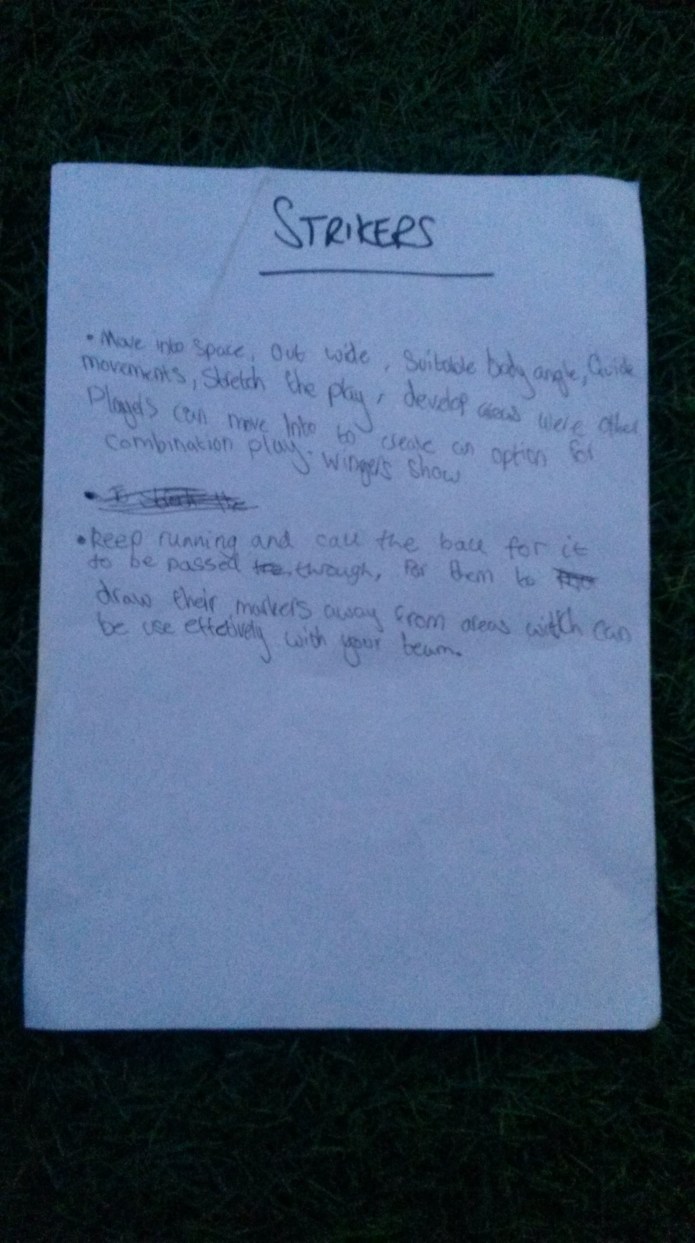 STRIKERS
• Move into space, out wide, Suitable body angle, Quick
movements, Stretch the play, develop areas were other
Players can move into to create an option for
combination play. Wingers show
• Keep running and call the ball for it
to be passed through, for them to
draw their markers away from areas witch can
be use effetively with your team.